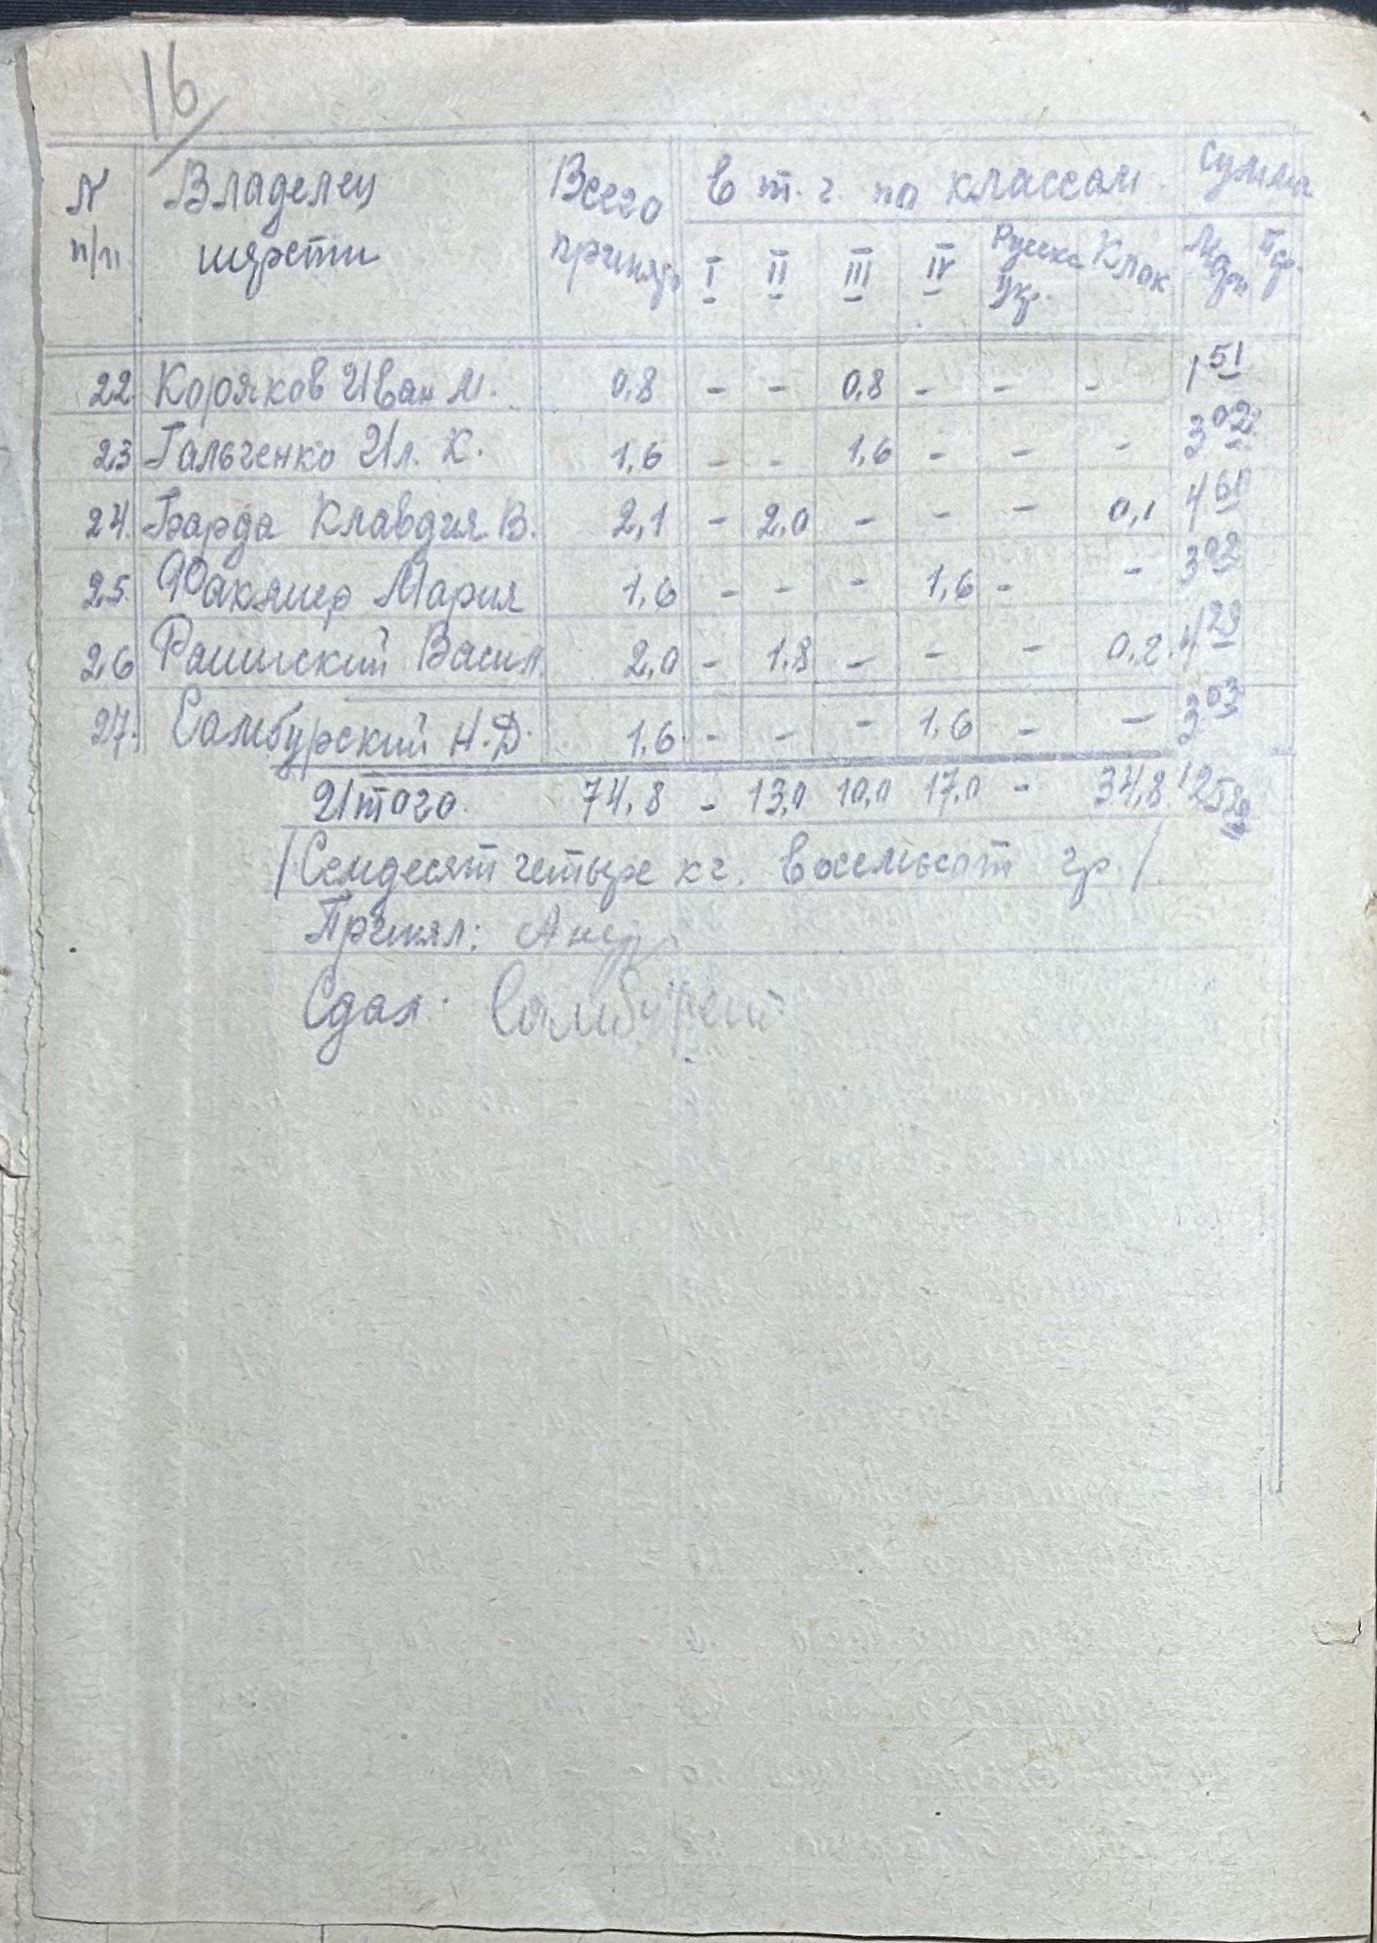 16
N Владелец Всего в т. ч. по классам Сумма
п/п шерсти I II III IV Клок
22 Коряков Иван М. 0,8 - - 0,8 - - - 1 51
23 Гальченко Ил. К. 1,6 - - 1,6 - - - 3 02
24. Барда Клавдия В. 2,1 - 2,0 - - - 0,1 4 60
25. Мария 1,6 - - - 1,6 - - 3 02
26 Рашиский Васил 2,0 - 1.8 - - - 0,2. 4 29
27. Самбурский Н.Д. 1,6 - - - 1,6 - - 3 03
Итого. 74,8 - 13,0 10,0 17,0 - 34,8
/Семдесят четыре кг. восемьсот гр./
Принял:
Сдал: